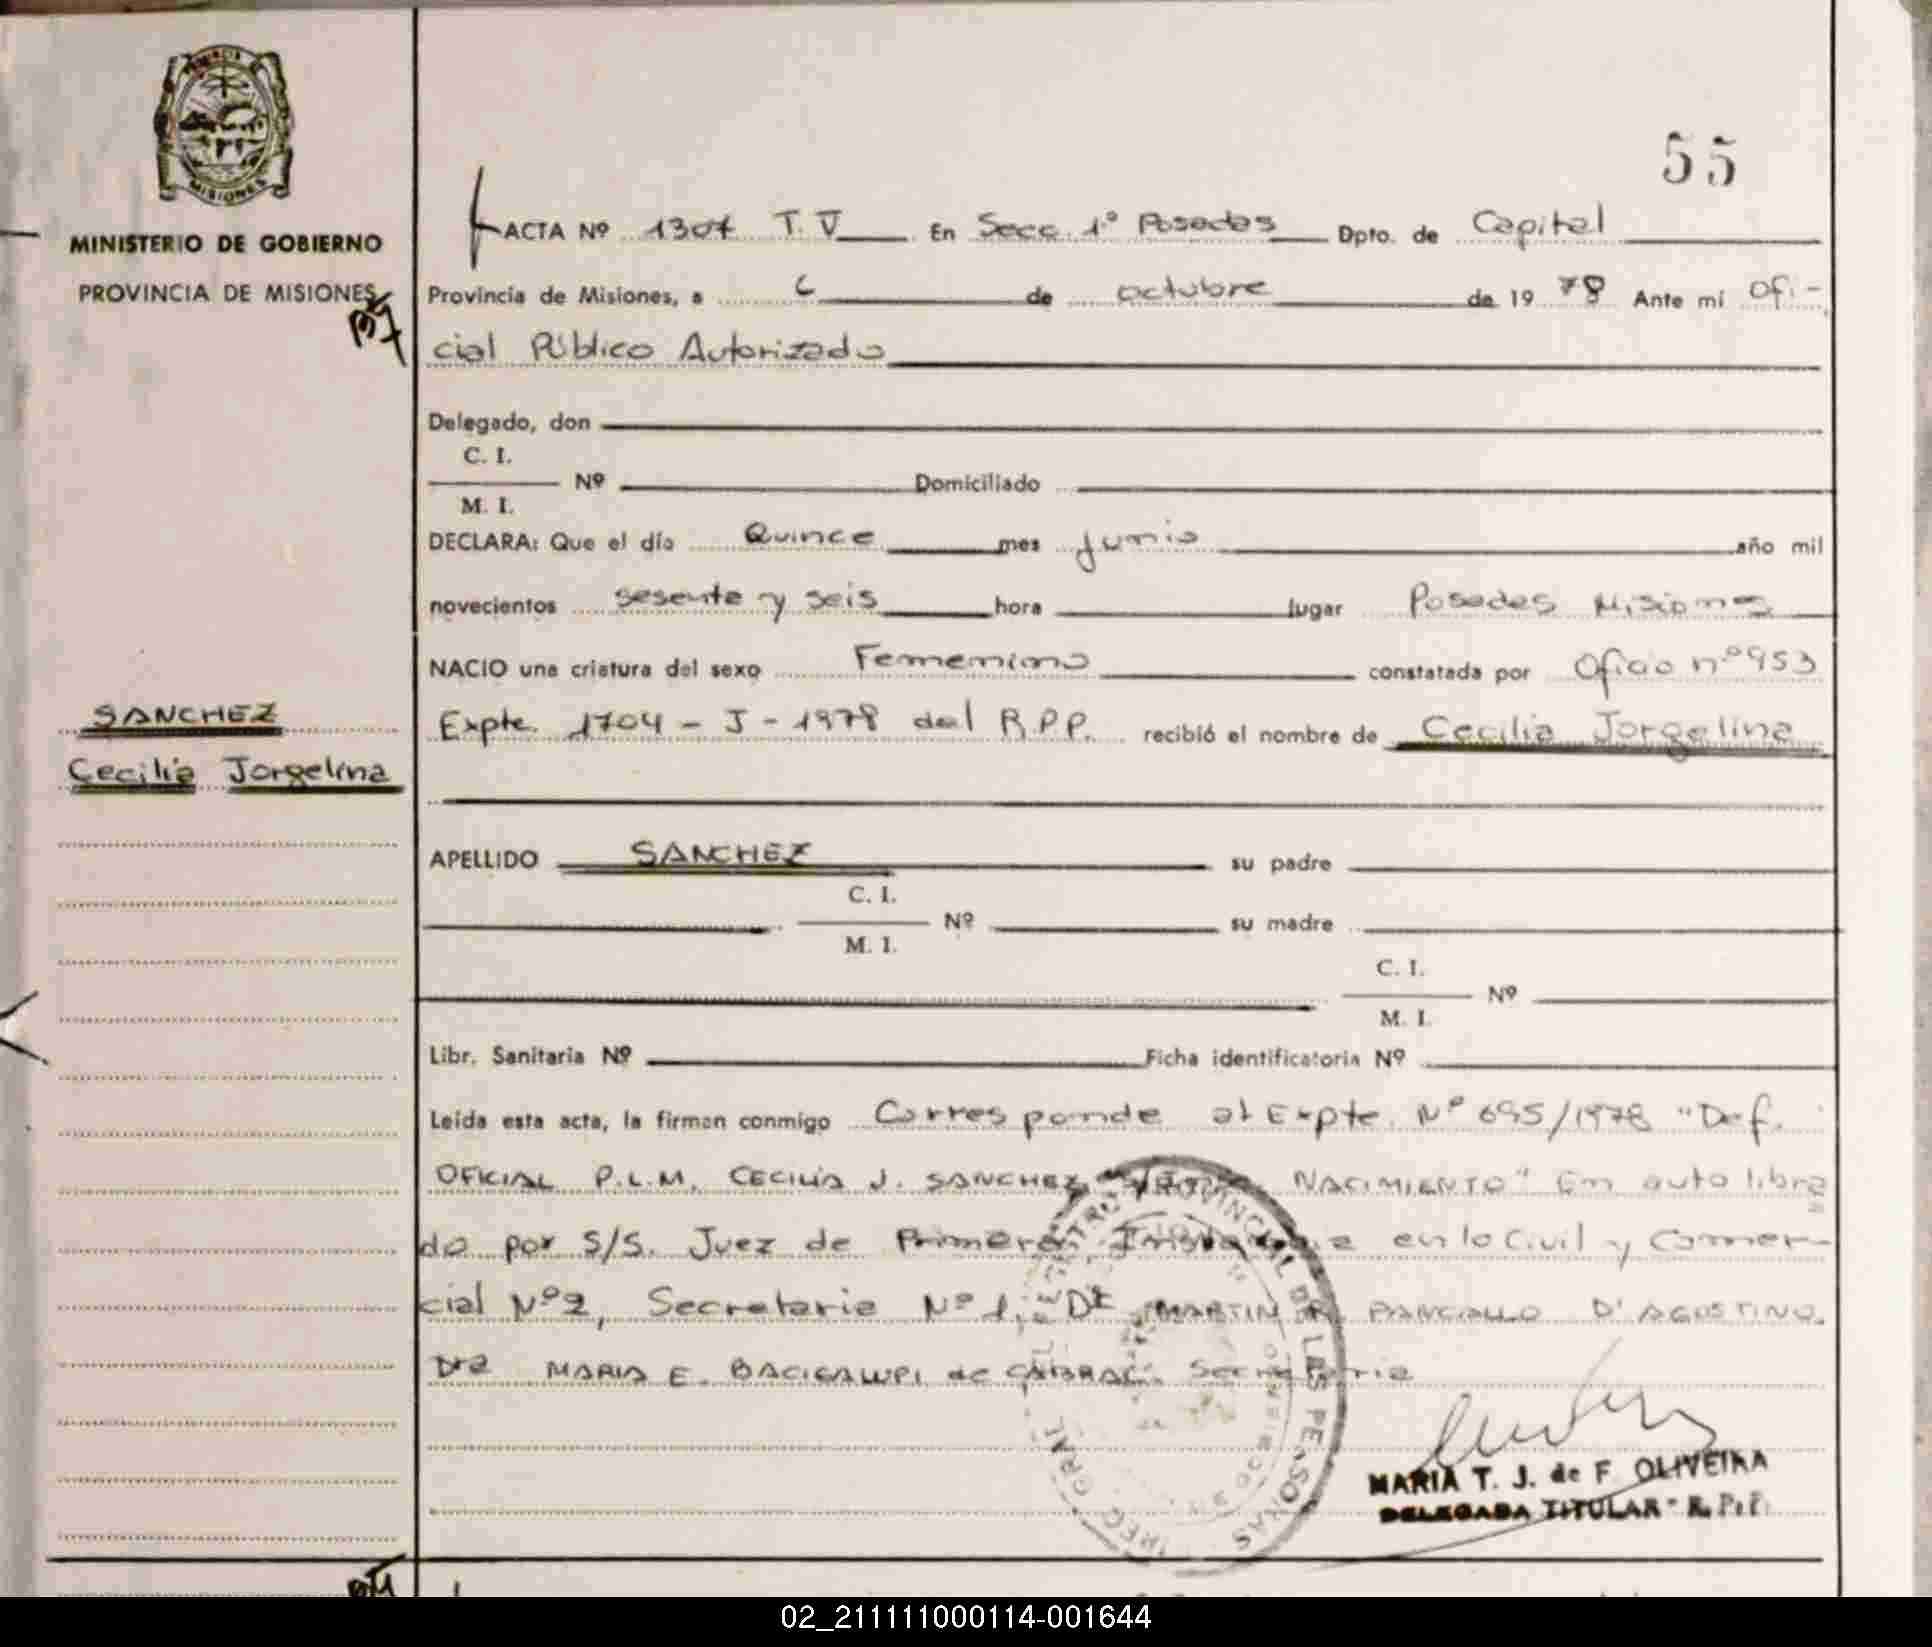 MISIONES
MINISTERIO DE GOBIERNO
PROVINCIA DE MISIONES
SANCHEZ
Cecilia Jorgelina
55
ACTA Nº 1307 T. V En Secc. 1º Posadas Dpto. de Capital
Provincia de Misiones, a 6 de octubre de 1978 Ante mí Ofi-
cial Público Autorizado
Delegado, don
C. I.
Nº Domiciliado
M. I.
DECLARA: Que el día Quince mes junio año mil
novecientos sesenta y seis hora lugar Posadas Misiones
NACIO una criatura del sexo Femenino constatada por Oficio nº 953
Expte. 1704 - J - 1978 del R.P.P. recibió el nombre de Cecilia Jorgelina
APELLIDO SANCHEZ su padre
C. I.
Nº su madre
M. I.
C. I.
Nº
M. I.
Libr. Sanitaria Nº Ficha identificatoria Nº
Leída esta acta, la firman conmigo Corresponde al Expte. Nº 695/1978 "Def.
OFICIAL P.L.M. CECILIA J. SANCHEZ NACIMIENTO" En auto libra
do por S/S. Juez de Primera Instancia en lo Civil y Comer-
cial Nº 2, Secretaria Nº 1, Dr. MARTIN R. PANGALLO D'AGOSTINO.
Dra MARIA E. BACIGALUPI de CABRAL. Secretaria
PROVINCIAL DE LAS PERSONAS
MARIA T. J. de F. OLIVEIRA
DELEGADA TITULAR - R. P. P.
02_211111000114-001644